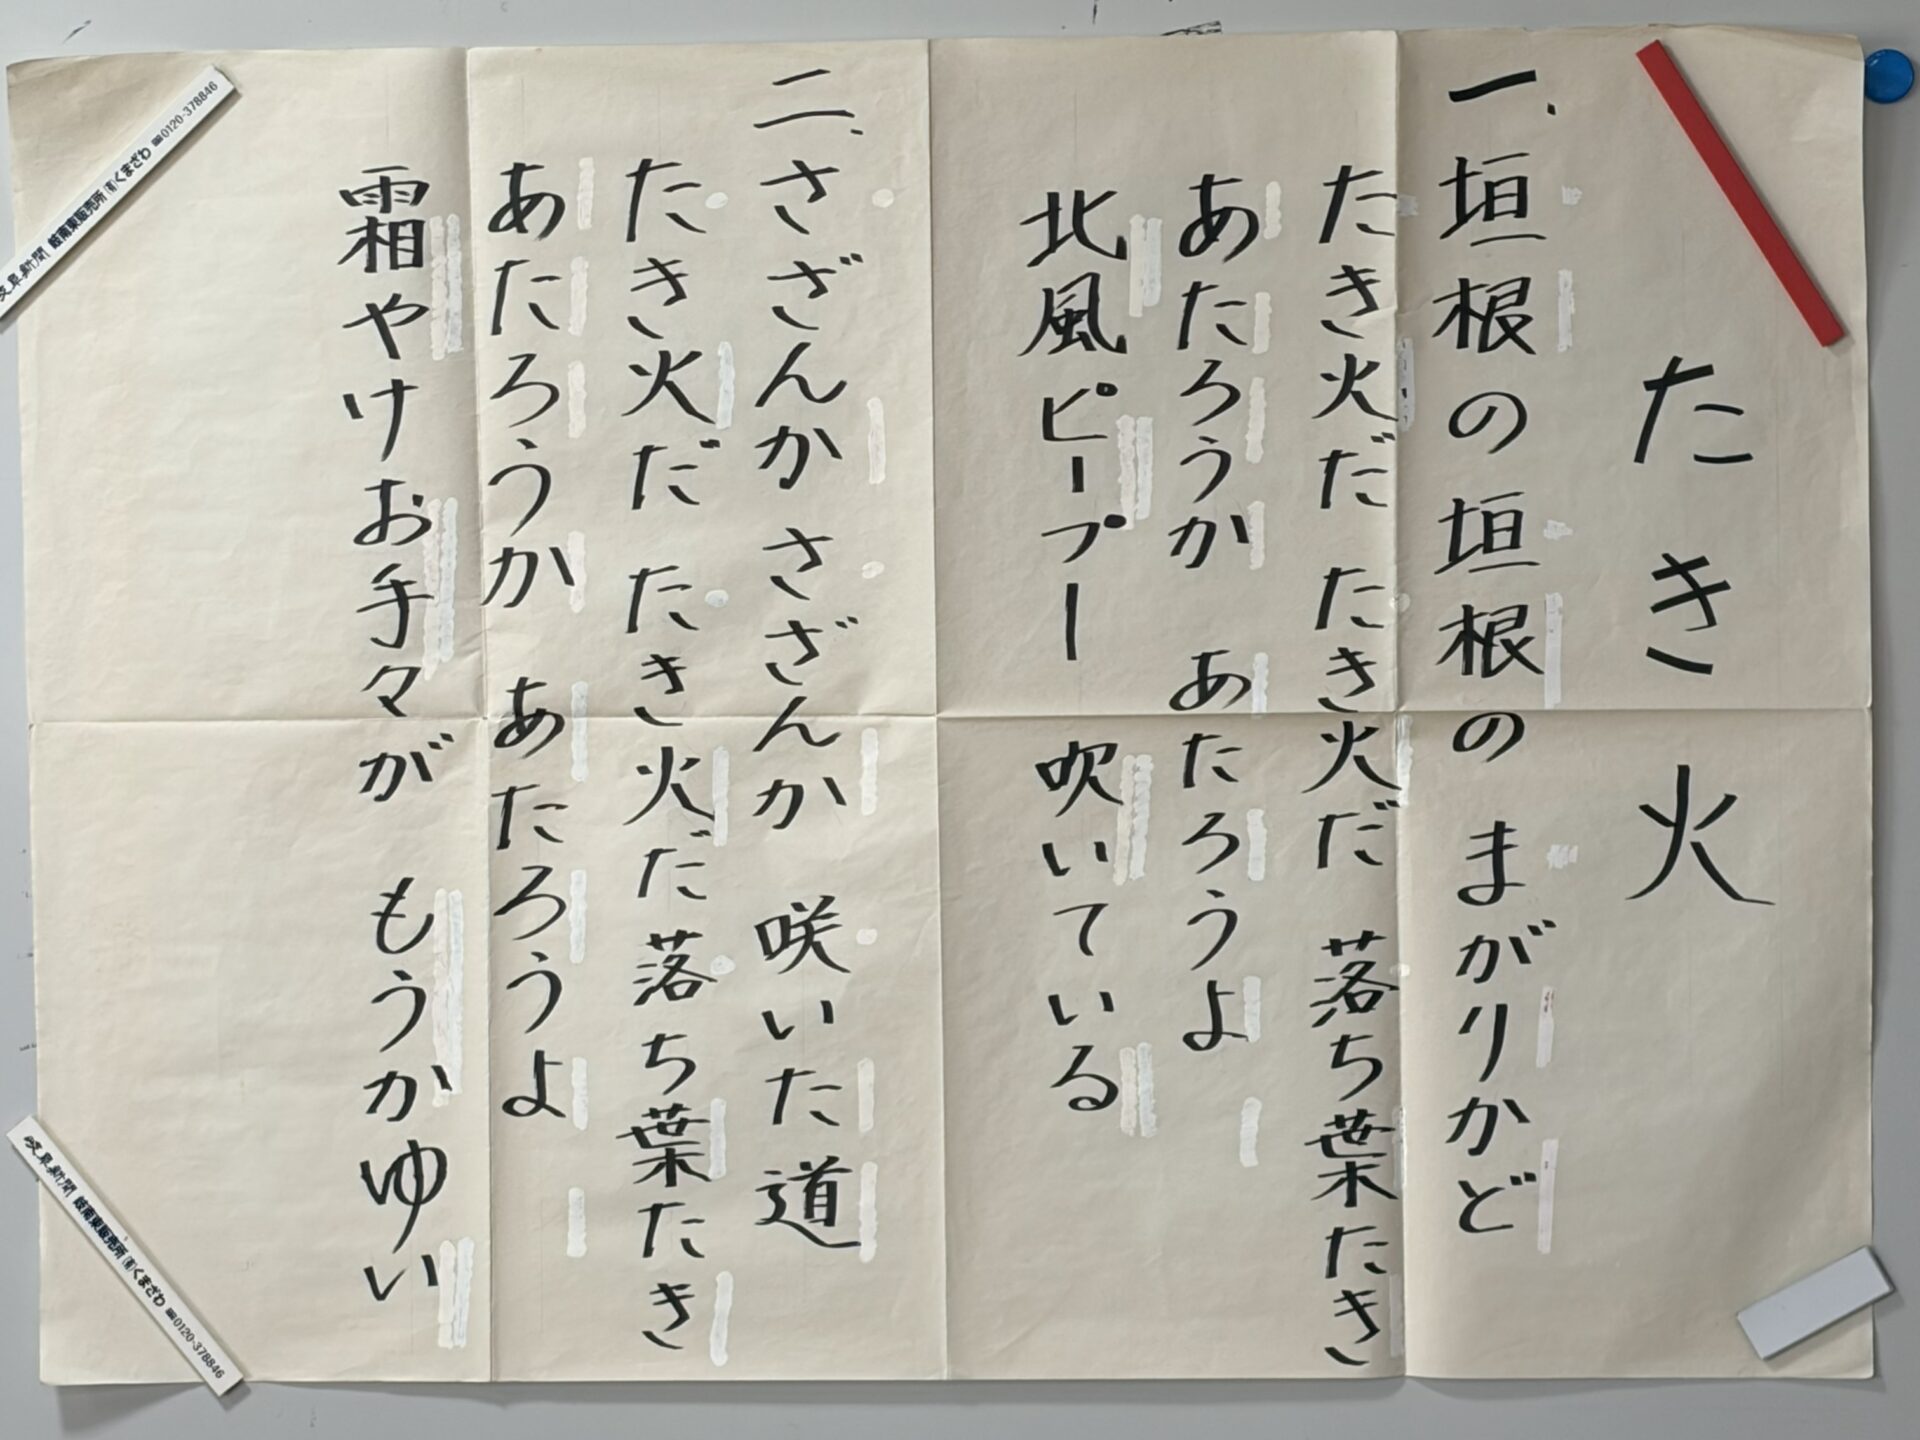 たき火
一、垣根の垣根の まがりかど
たき火だ たき火だ 落ち葉たき
あたろうか あたろうよ
北風ピープー 吹いている
二、さざんか さざんか 咲いた道
たき火だ たき火だ落ち葉たき
あたろうか あたろうよ
霜やけお手々が もうかゆい
岐阜新聞 岐南東販売所 (有)くまざわ ☎0120-378846
岐阜新聞 岐南東販売所 (有)くまざわ ☎0120-378846